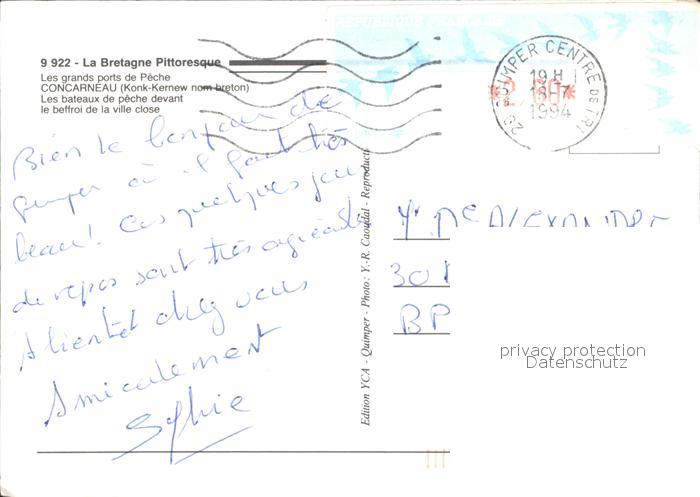 9 922 - La Bretagne Pittoresque
Les grands ports de Pêche
CONCARNEAU (Konk-Kernew nom breton)
Les bateaux de pêche devant
le beffroi de la ville close
REPUBLIQUE FRANCAISE
29 QUIMPER CENTRE DE TRI
19 H
18-7
1994
Bien le bonjour de
Quimper où il fait très
beau! Ces quelques jours
de repos sont très agréables
A bientôt chez vous
Amicalement
Sophie
Edition YCA - Quimper - Photo: Y.-R. Caoudal - Reproduction
301
BP
privacy protection
Datenschutz